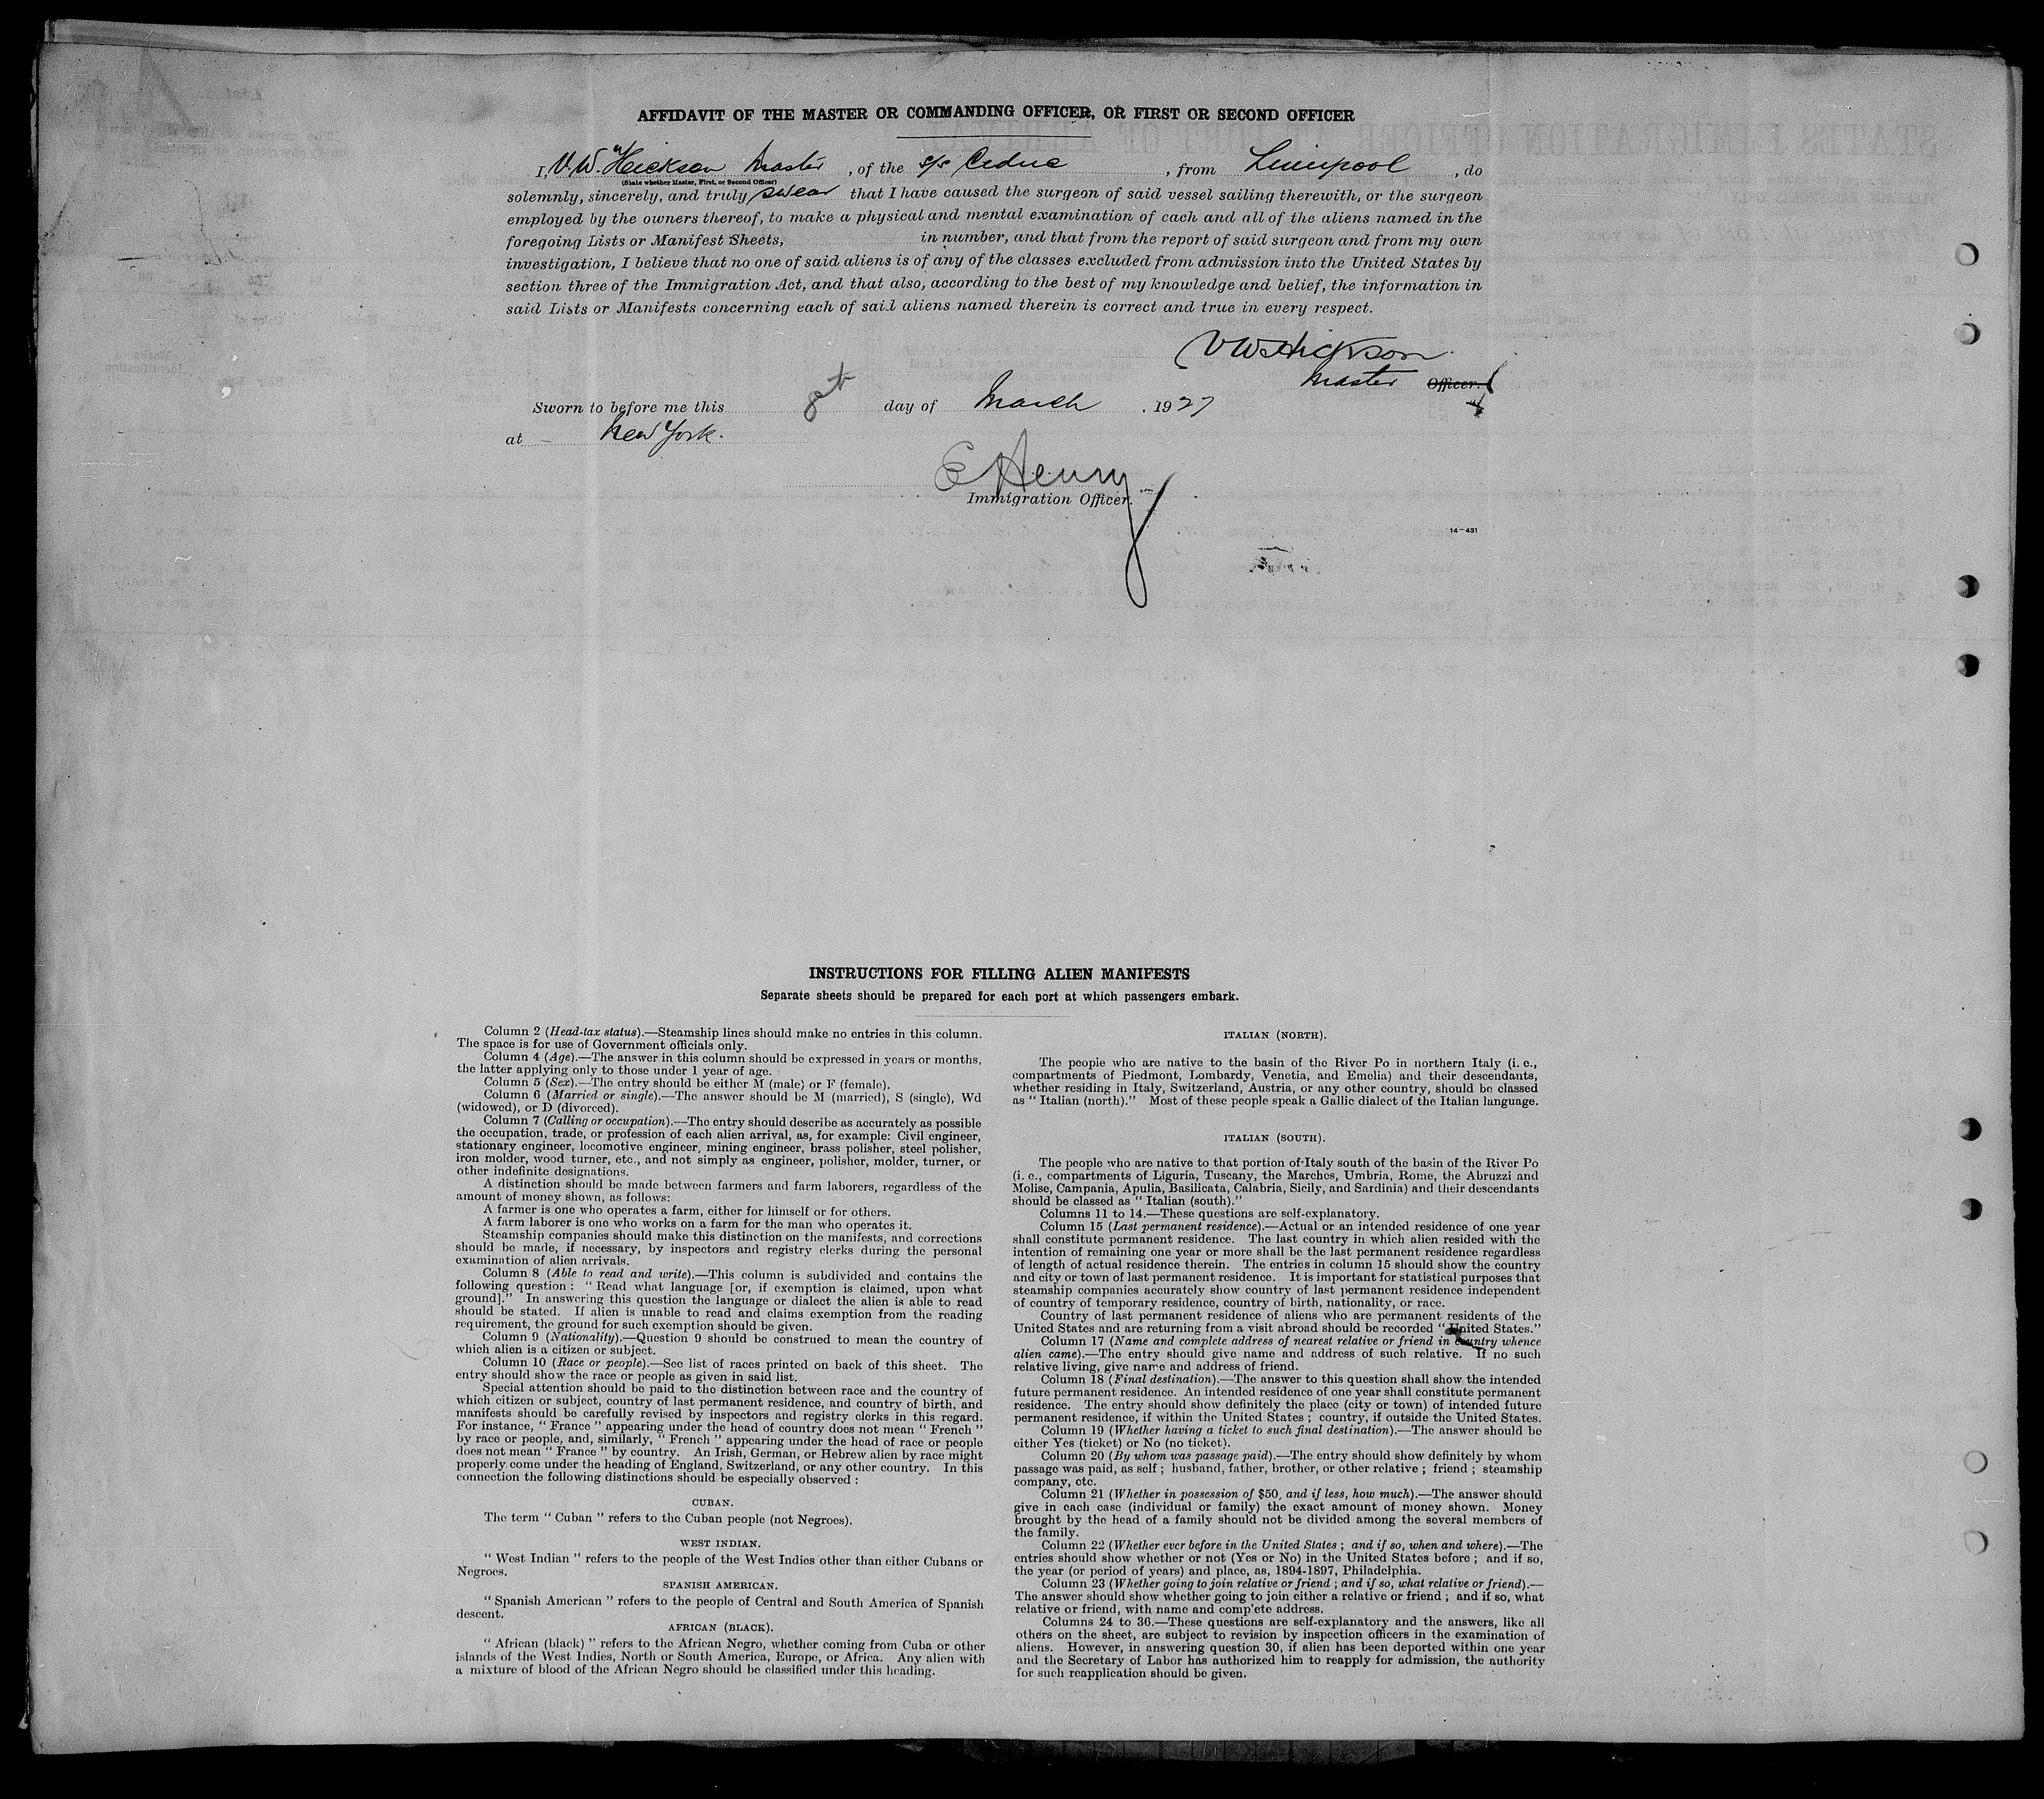 AFFIDAVIT OF THE MASTER OR COMMANDING OFFICER, OR FIRST OR SECOND OFFICER
I, V.W. Hickson Master, of the s/s Cedric, from Liverpool, do
(State whether Master, First, or Second Officer)
solemnly, sincerely, and truly swear that I have caused the surgeon of said vessel sailing therewith, or the surgeon
employed by the owners thereof, to make a physical and mental examination of each and all of the aliens named in the
foregoing Lists or Manifest Sheets, in number, and that from the report of said surgeon and from my own
investigation, I believe that no one of said aliens is of any of the classes excluded from admission into the United States by
section three of the Immigration Act, and that also, according to the best of my knowledge and belief, the information in
said Lists or Manifests concerning each of said aliens named therein is correct and true in every respect.
VW Hickson
Master Officer.
Sworn to before me this 8th day of March, 1927
at New York.
E Henry
Immigration Officer.
14-431
INSTRUCTIONS FOR FILLING ALIEN MANIFESTS
Separate sheets should be prepared for each port at which passengers embark.
Column 2 (Head-tax status).—Steamship lines should make no entries in this column.
The space is for use of Government officials only.
Column 4 (Age).—The answer in this column should be expressed in years or months,
the latter applying only to those under 1 year of age.
Column 5 (Sex).—The entry should be either M (male) or F (female).
Column 6 (Married or single).—The answer should be M (married), S (single), Wd
(widowed), or D (divorced).
Column 7 (Calling or occupation).—The entry should describe as accurately as possible
the occupation, trade, or profession of each alien arrival, as, for example: Civil engineer,
stationary engineer, locomotive engineer, mining engineer, brass polisher, steel polisher,
iron molder, wood turner, etc., and not simply as engineer, polisher, molder, turner, or
other indefinite designations.
A distinction should be made between farmers and farm laborers, regardless of the
amount of money shown, as follows:
A farmer is one who operates a farm, either for himself or for others.
A farm laborer is one who works on a farm for the man who operates it.
Steamship companies should make this distinction on the manifests, and corrections
should be made, if necessary, by inspectors and registry clerks during the personal
examination of alien arrivals.
Column 8 (Able to read and write).—This column is subdivided and contains the
following question: "Read what language [or, if exemption is claimed, upon what
ground]." In answering this question the language or dialect the alien is able to read
should be stated. If alien is unable to read and claims exemption from the reading
requirement, the ground for such exemption should be given.
Column 9 (Nationality).—Question 9 should be construed to mean the country of
which alien is a citizen or subject.
Column 10 (Race or people).—See list of races printed on back of this sheet. The
entry should show the race or people as given in said list.
Special attention should be paid to the distinction between race and the country of
which citizen or subject, country of last permanent residence, and country of birth, and
manifests should be carefully revised by inspectors and registry clerks in this regard.
For instance, "France" appearing under the head of country does not mean "French"
by race or people, and, similarly, "French" appearing under the head of race or people
does not mean "France" by country. An Irish, German, or Hebrew alien by race might
properly come under the heading of England, Switzerland, or any other country. In this
connection the following distinctions should be especially observed:
CUBAN.
The term "Cuban" refers to the Cuban people (not Negroes).
WEST INDIAN.
"West Indian" refers to the people of the West Indies other than either Cubans or
Negroes.
SPANISH AMERICAN.
"Spanish American" refers to the people of Central and South America of Spanish
descent.
AFRICAN (BLACK).
"African (black)" refers to the African Negro, whether coming from Cuba or other
islands of the West Indies, North or South America, Europe, or Africa. Any alien with
a mixture of blood of the African Negro should be classified under this heading.
ITALIAN (NORTH).
The people who are native to the basin of the River Po in northern Italy (i. e.,
compartments of Piedmont, Lombardy, Venetia, and Emelia) and their descendants,
whether residing in Italy, Switzerland, Austria, or any other country, should be classed
as "Italian (north)." Most of these people speak a Gallic dialect of the Italian language.
ITALIAN (SOUTH).
The people who are native to that portion of Italy south of the basin of the River Po
(i. e., compartments of Liguria, Tuscany, the Marches, Umbria, Rome, the Abruzzi and
Molise, Campania, Apulia, Basilicata, Calabria, Sicily, and Sardinia) and their descendants
should be classed as "Italian (south)."
Columns 11 to 14.—These questions are self-explanatory.
Column 15 (Last permanent residence).—Actual or an intended residence of one year
shall constitute permanent residence. The last country in which alien resided with the
intention of remaining one year or more shall be the last permanent residence regardless
of length of actual residence therein. The entries in column 15 should show the country
and city or town of last permanent residence. It is important for statistical purposes that
steamship companies accurately show country of last permanent residence independent
of country of temporary residence, country of birth, nationality, or race.
Country of last permanent residence of aliens who are permanent residents of the
United States and are returning from a visit abroad should be recorded "United States."
Column 17 (Name and complete address of nearest relative or friend in country whence
alien came).—The entry should give name and address of such relative. If no such
relative living, give name and address of friend.
Column 18 (Final destination).—The answer to this question shall show the intended
future permanent residence. An intended residence of one year shall constitute permanent
residence. The entry should show definitely the place (city or town) of intended future
permanent residence, if within the United States; country, if outside the United States.
Column 19 (Whether having a ticket to such final destination).—The answer should be
either Yes (ticket) or No (no ticket).
Column 20 (By whom was passage paid).—The entry should show definitely by whom
passage was paid, as self; husband, father, brother, or other relative; friend; steamship
company, etc.
Column 21 (Whether in possession of $50, and if less, how much).—The answer should
give in each case (individual or family) the exact amount of money shown. Money
brought by the head of a family should not be divided among the several members of
the family.
Column 22 (Whether ever before in the United States; and if so, when and where).—The
entries should show whether or not (Yes or No) in the United States before; and if so,
the year (or period of years) and place, as, 1894-1897, Philadelphia.
Column 23 (Whether going to join relative or friend; and if so, what relative or friend).—
The answer should show whether going to join either a relative or friend; and if so, what
relative or friend, with name and complete address.
Columns 24 to 36.—These questions are self-explanatory and the answers, like all
others on the sheet, are subject to revision by inspection officers in the examination of
aliens. However, in answering question 30, if alien has been deported within one year
and the Secretary of Labor has authorized him to reapply for admission, the authority
for such reapplication should be given.